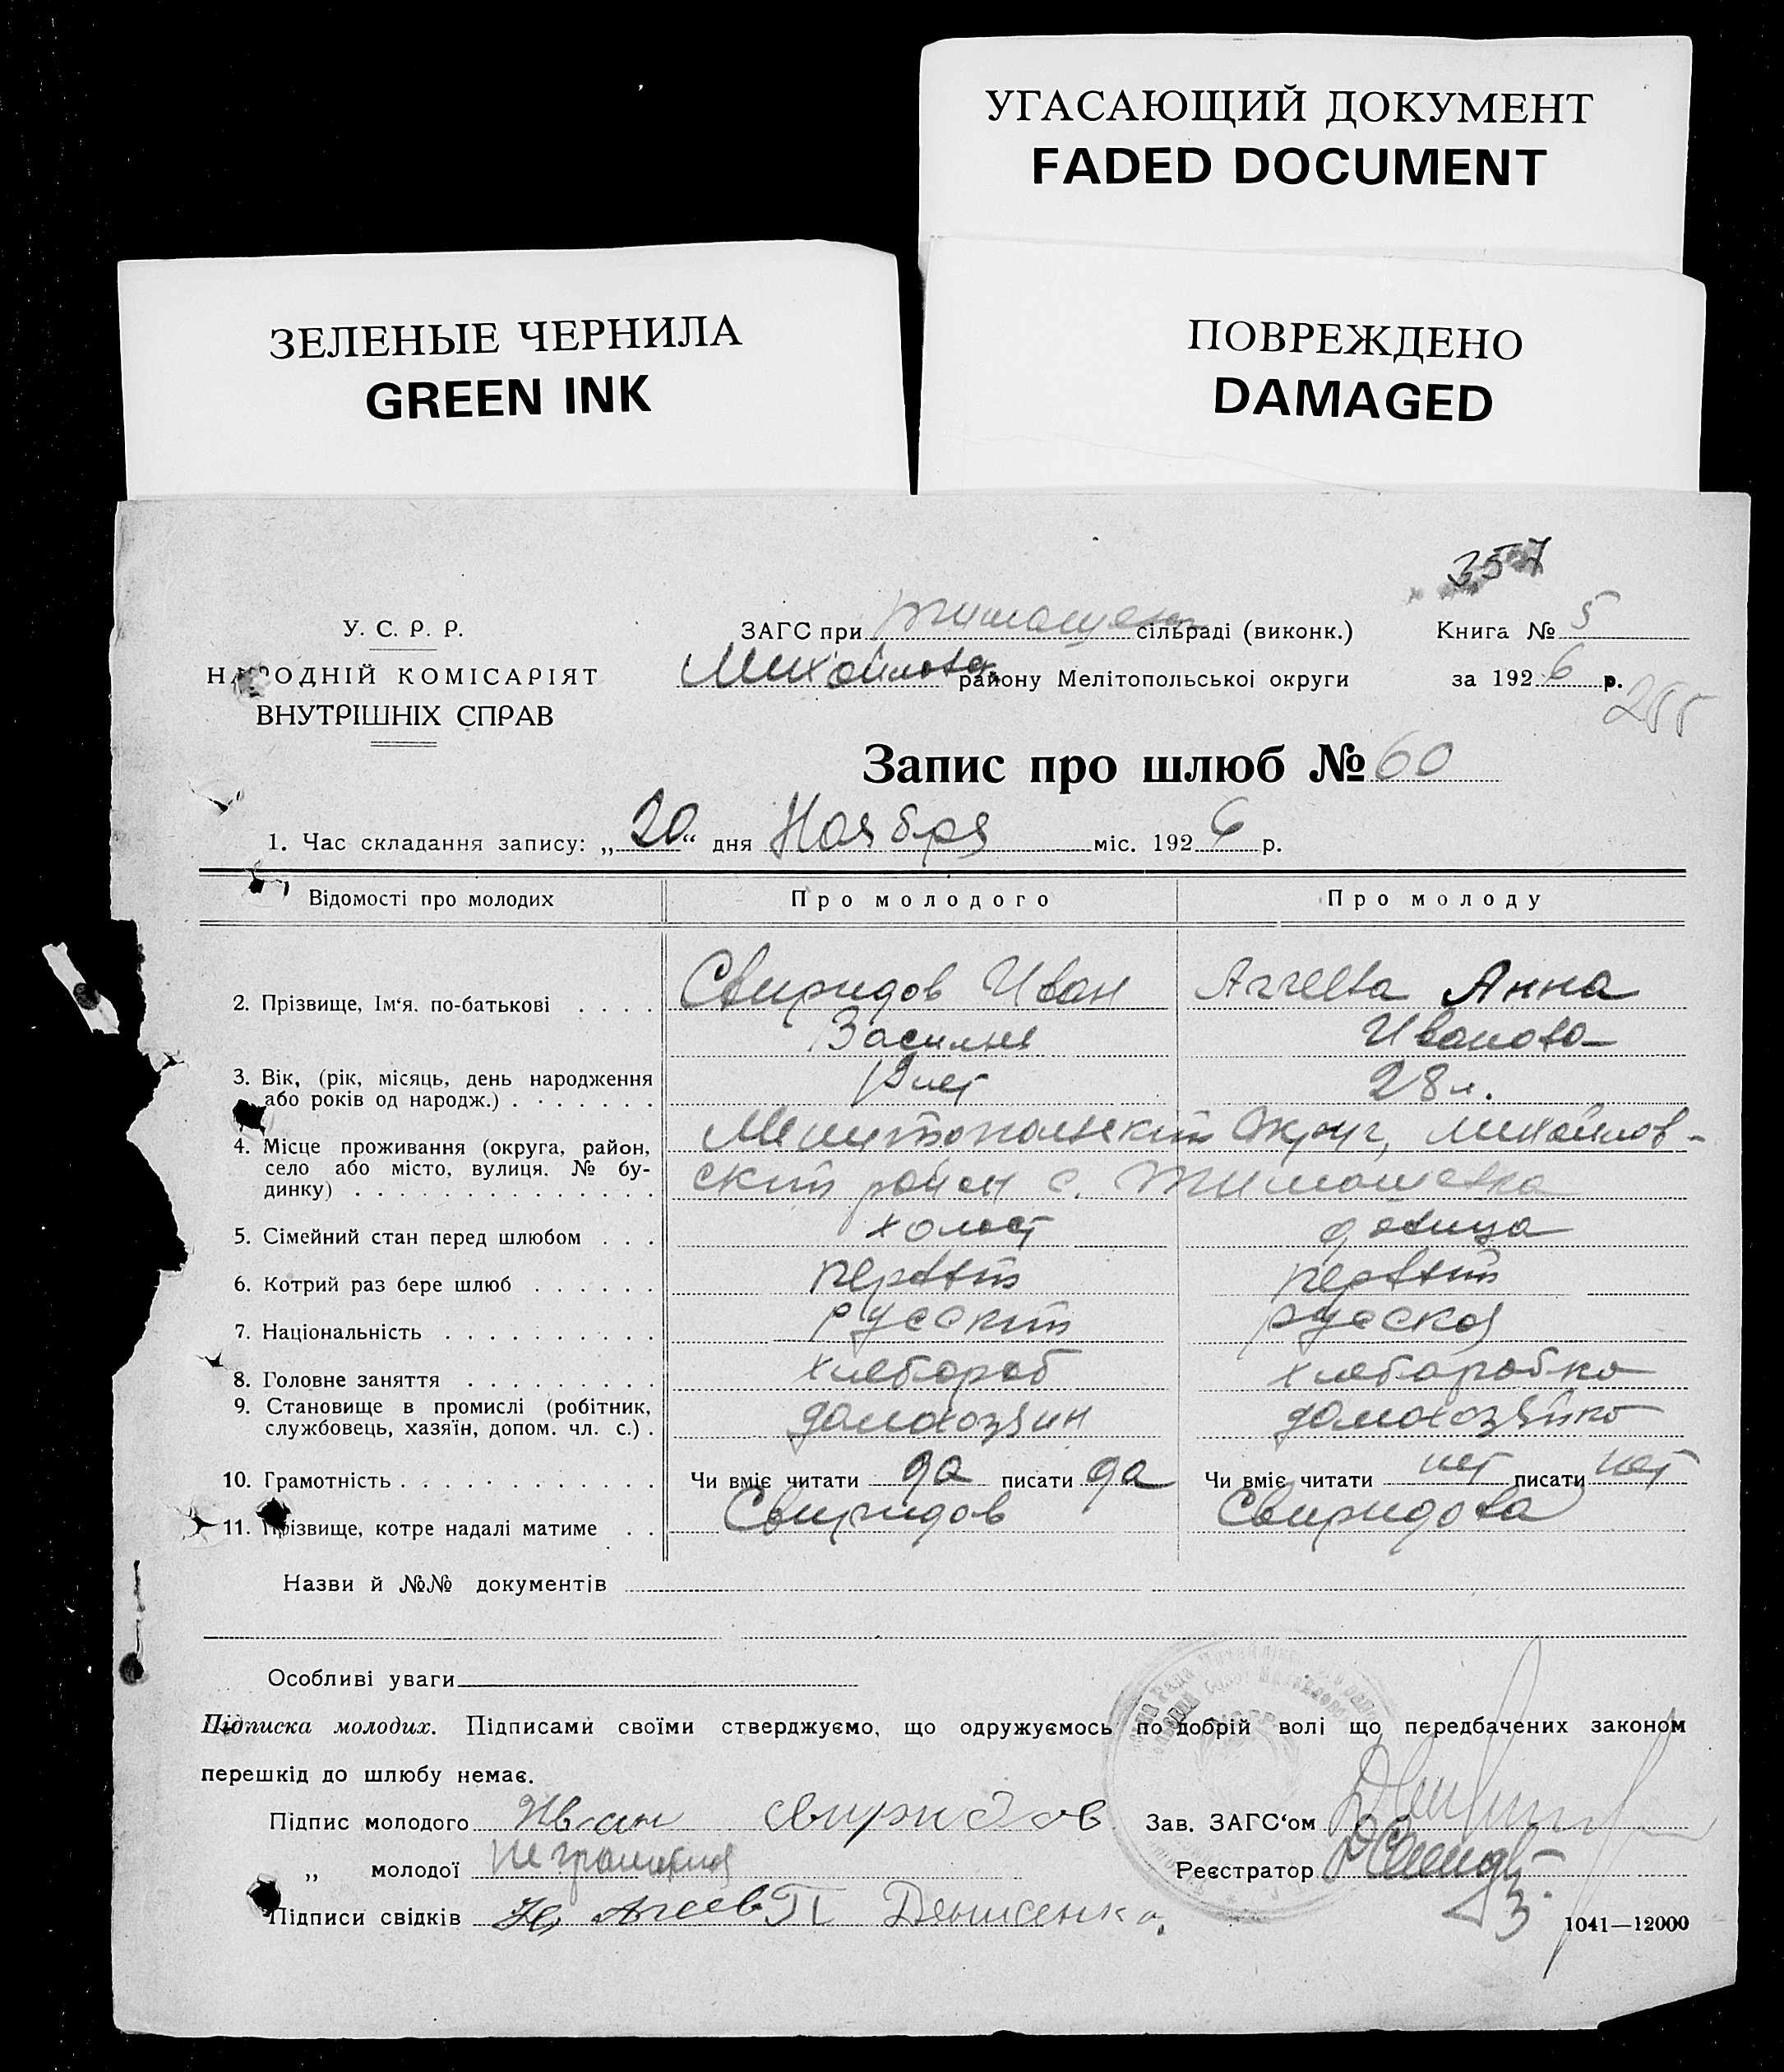 УГАСАЮЩИЙ ДОКУМЕНТ
FADED DOCUMENT
ЗЕЛЕНЫЕ ЧЕРНИЛА
GREEN INK
ПОВРЕЖДЕНО
DAMAGED
357
У. С. Р. Р.
НАРОДНІЙ КОМІСАРІЯТ
ВНУТРІШНІХ СПРАВ
ЗАГС при Тимошев сільраді (виконк.)
Михайлов. району Мелітопольської округи
Книга № 5
за 1926 р.
Запис про шлюб № 60
1. Час складання запису: „20“ дня Ноября міс. 1926 р.
Відомості про молодих Про молодого Про молоду
2. Прізвище, Ім‘я. по-батькові . . . . Свиридов Иван Аггеева Анна
Василье Иванова
3. Вік, (рік, місяць, день народження
або років од народж.) . . . . . . . лет 28 л.
4. Місце проживання (округа, район, Мелитопольский Округ, Михайлов-
село або місто, вулиця. № бу-
динку) . . . . . . . . . . . . . . ский район с. Тимошевка
5. Сімейний стан перед шлюбом . . . холост девица
6. Котрий раз бере шлюб . . . . . . первый первый
7. Національність . . . . . . . . . . русский русская
8. Головне заняття . . . . . . . . . хлебороб хлеборобка
9. Становище в промислі (робітник,
службовець, хазяїн, допом. чл. с.) . домохозяин домохозяйка
10. Грамотність . . . . . . . . . . . . Чи вміє читати да писати да Чи вміє читати нет писати нет
11. Прізвище, котре надалі матиме . . Свиридов Свиридова
Назви й №№ документів
Особливі уваги
Підписка молодих. Підписами своїми стверджуємо, що одружуємось по добрій волі що передбачених законом
перешкід до шлюбу немає.
Підпис молодого Иван свиридов Зав. ЗАГС‘ом
„ молодої неграмотная Реєстратор
Підписи свідків Агеев П Денисенко
1041—12000